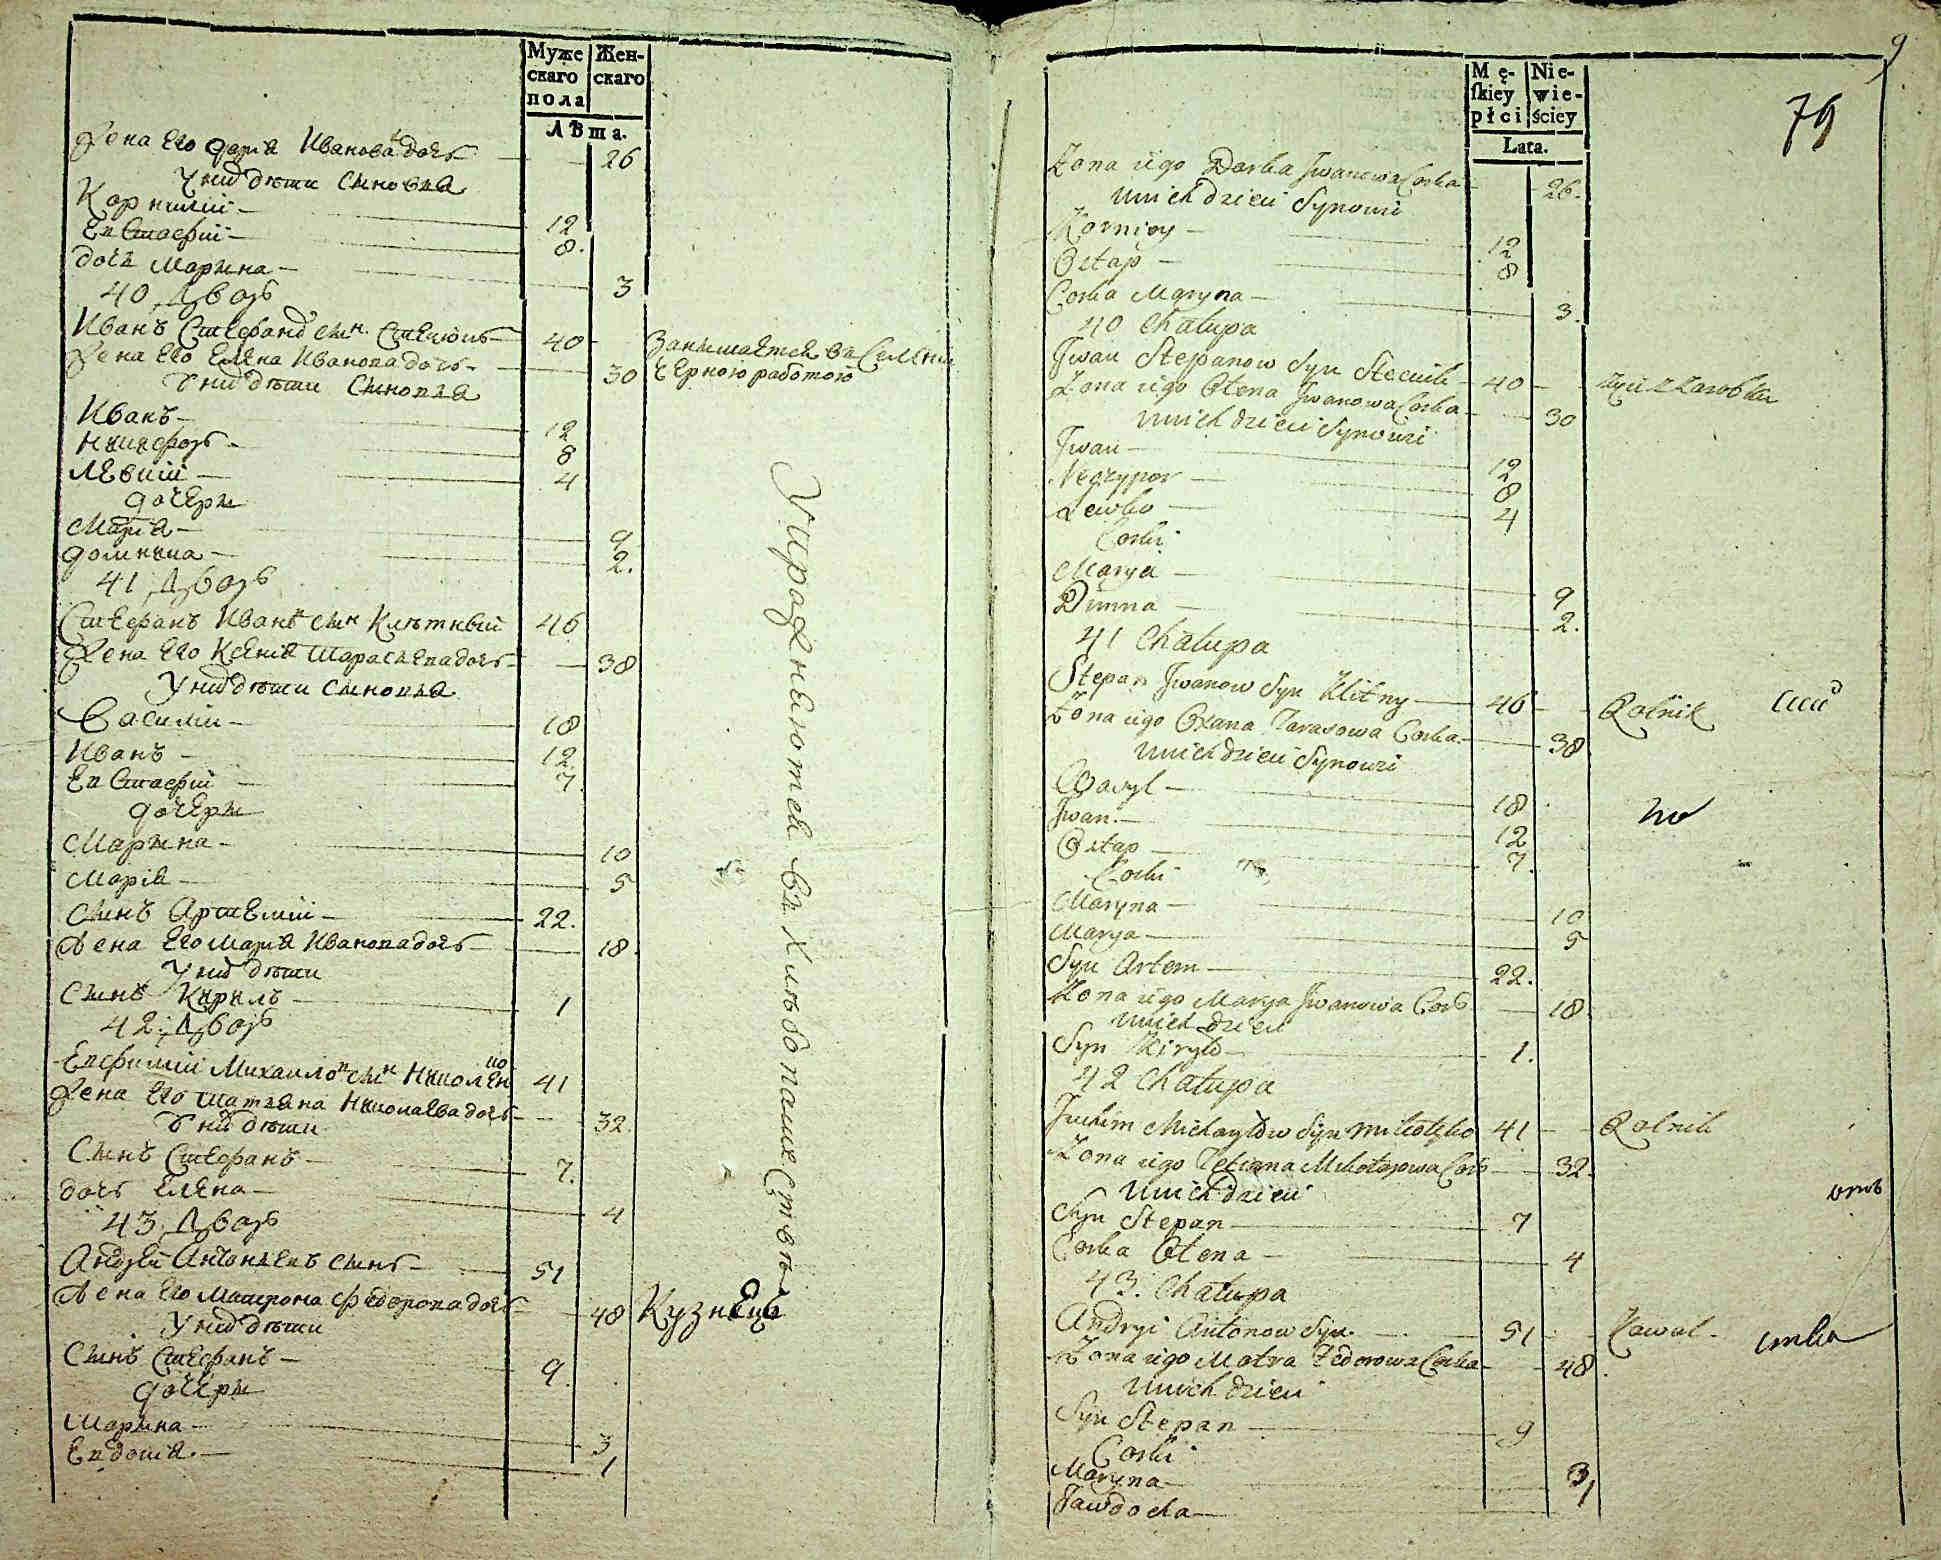 Муже
скаго
пола
Жен-
скаго
Лѣта.
Жена Его Дарія Иванова дочь 26
У них дѣти Сыновья
Корнилій 12
Евстафій 8.
дочь Марына 3
40 Дворъ
Иванъ Стефанов сын 40
Занимается въ Селеніи
Жена Его Елена Иванова дочь 30
Чорною работою
У них дѣти Сыновья
Иванъ 12
Никифоръ 8
Левкій 4
дочери
Марія 9
Домника 2.
41 Дворъ
Стефанъ Иванов сын Клѣтный 46
Жена Его Ксенія Тарасиева дочь 38
У них дѣти Сыновья
Василій 18
Иванъ 12
Евстафій 7
дочери
Марына 10
Марія 5
Сынъ Артемій 22.
Жена Его Марія Иванова дочь 18.
У них дѣти
Сынъ Кирилъ 1
42 Дворъ
Евфимій Михаилов сын 41
Жена Его Татіана Николаева дочь 32
У них дѣти
Сынъ Стефанъ 7.
дочь Елена 4
43 Дворъ
Андрей Антоніевъ сынъ 51
Жена Его Матрона Федорова дочь 48
Кузнецъ
У них дѣти
Сынъ Стефанъ 9
дочери
Марына 3
Евдокія 1
Упражняются въ хлѣбопашествѣ
9
79
Mę-
ſkiey
płci
Nie-
wie-
ściey
Lata.
Zona iego Darka Jwanowa Corka 26.
Unich dzieci Synowi
Korniey 12
Ostap 8
Corka Maryna 3.
40 Chalupa
Jwan Stepanow Syn 40 Zyie z Zarobku
Zona iego Olena Jwanowa Corka 30
Unich dzieci Synowi
Jwan 12
Neczypor 8
Lewko 4
Corki
Marya 9
Dimna 2.
41 Chalupa
Stepan Jwanow Syn Klitny 46 Rolnik
Zona iego Oxana Tarasowa Corka 38
Unich dzieci Synowi
Wasyl 18
Jwan 12
Ostap 7.
Corki
Maryna 10
Marya 5
Syn Artem 22.
Zona iego Marya Jwanowa Cor 18
Unich dzieci
Syn Kiryło 1.
42 Chalupa
Juchim Michayłow Syn 41 Rolnik
Zona iego Tetiana Mikołajowa Cor 32.
Unich dzieci
Syn Stepan 7
Corka Olena 4
43. Chalupa
Andryi Antonow Syn 51 Kowal
Zona iego Motra Fedorowa Corka 48
Unich dzieci
Syn Stepan 9
Corki
Maryna 3
Jawdocha 1